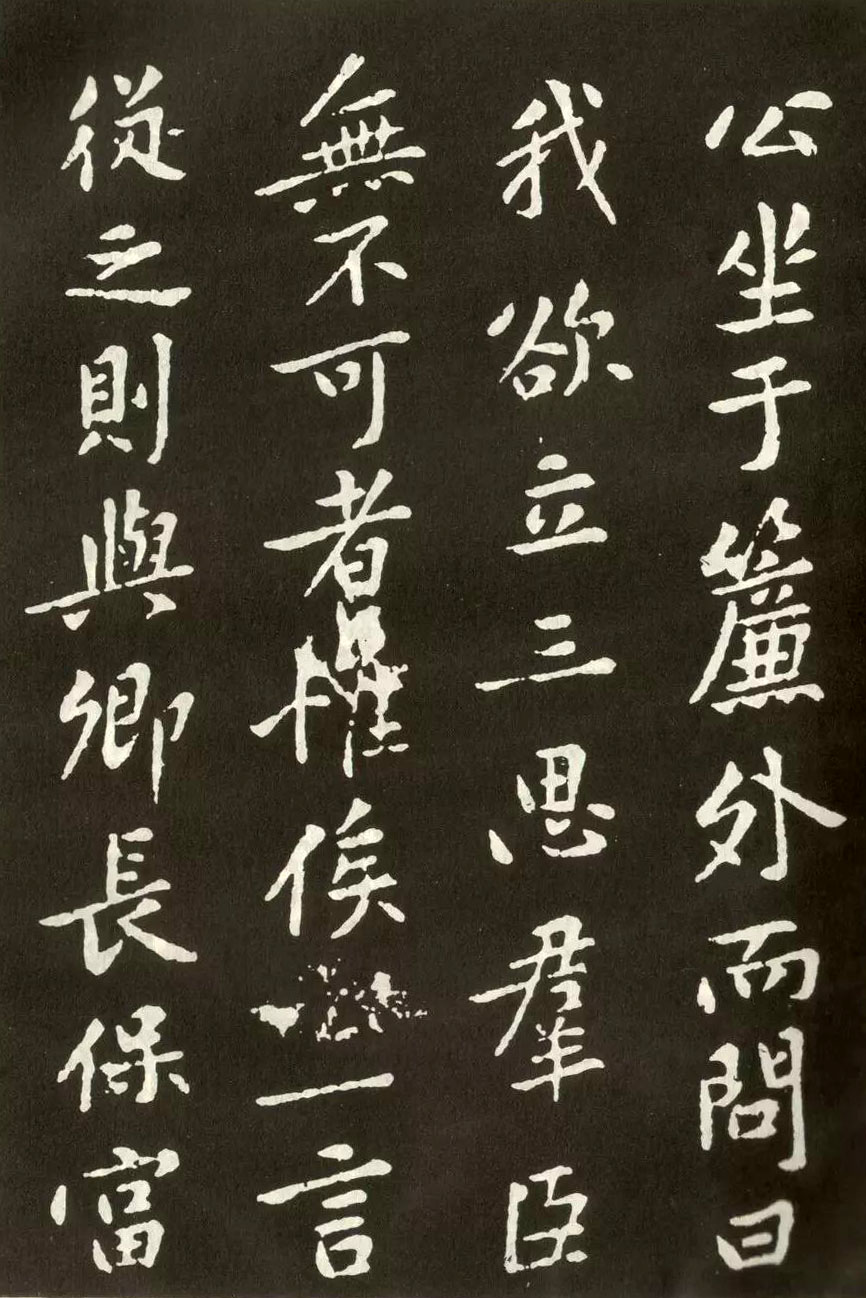 公坐于簾外而問曰
我欲立三思羣臣
無不可者惟俟一言
從之則與卿長保富